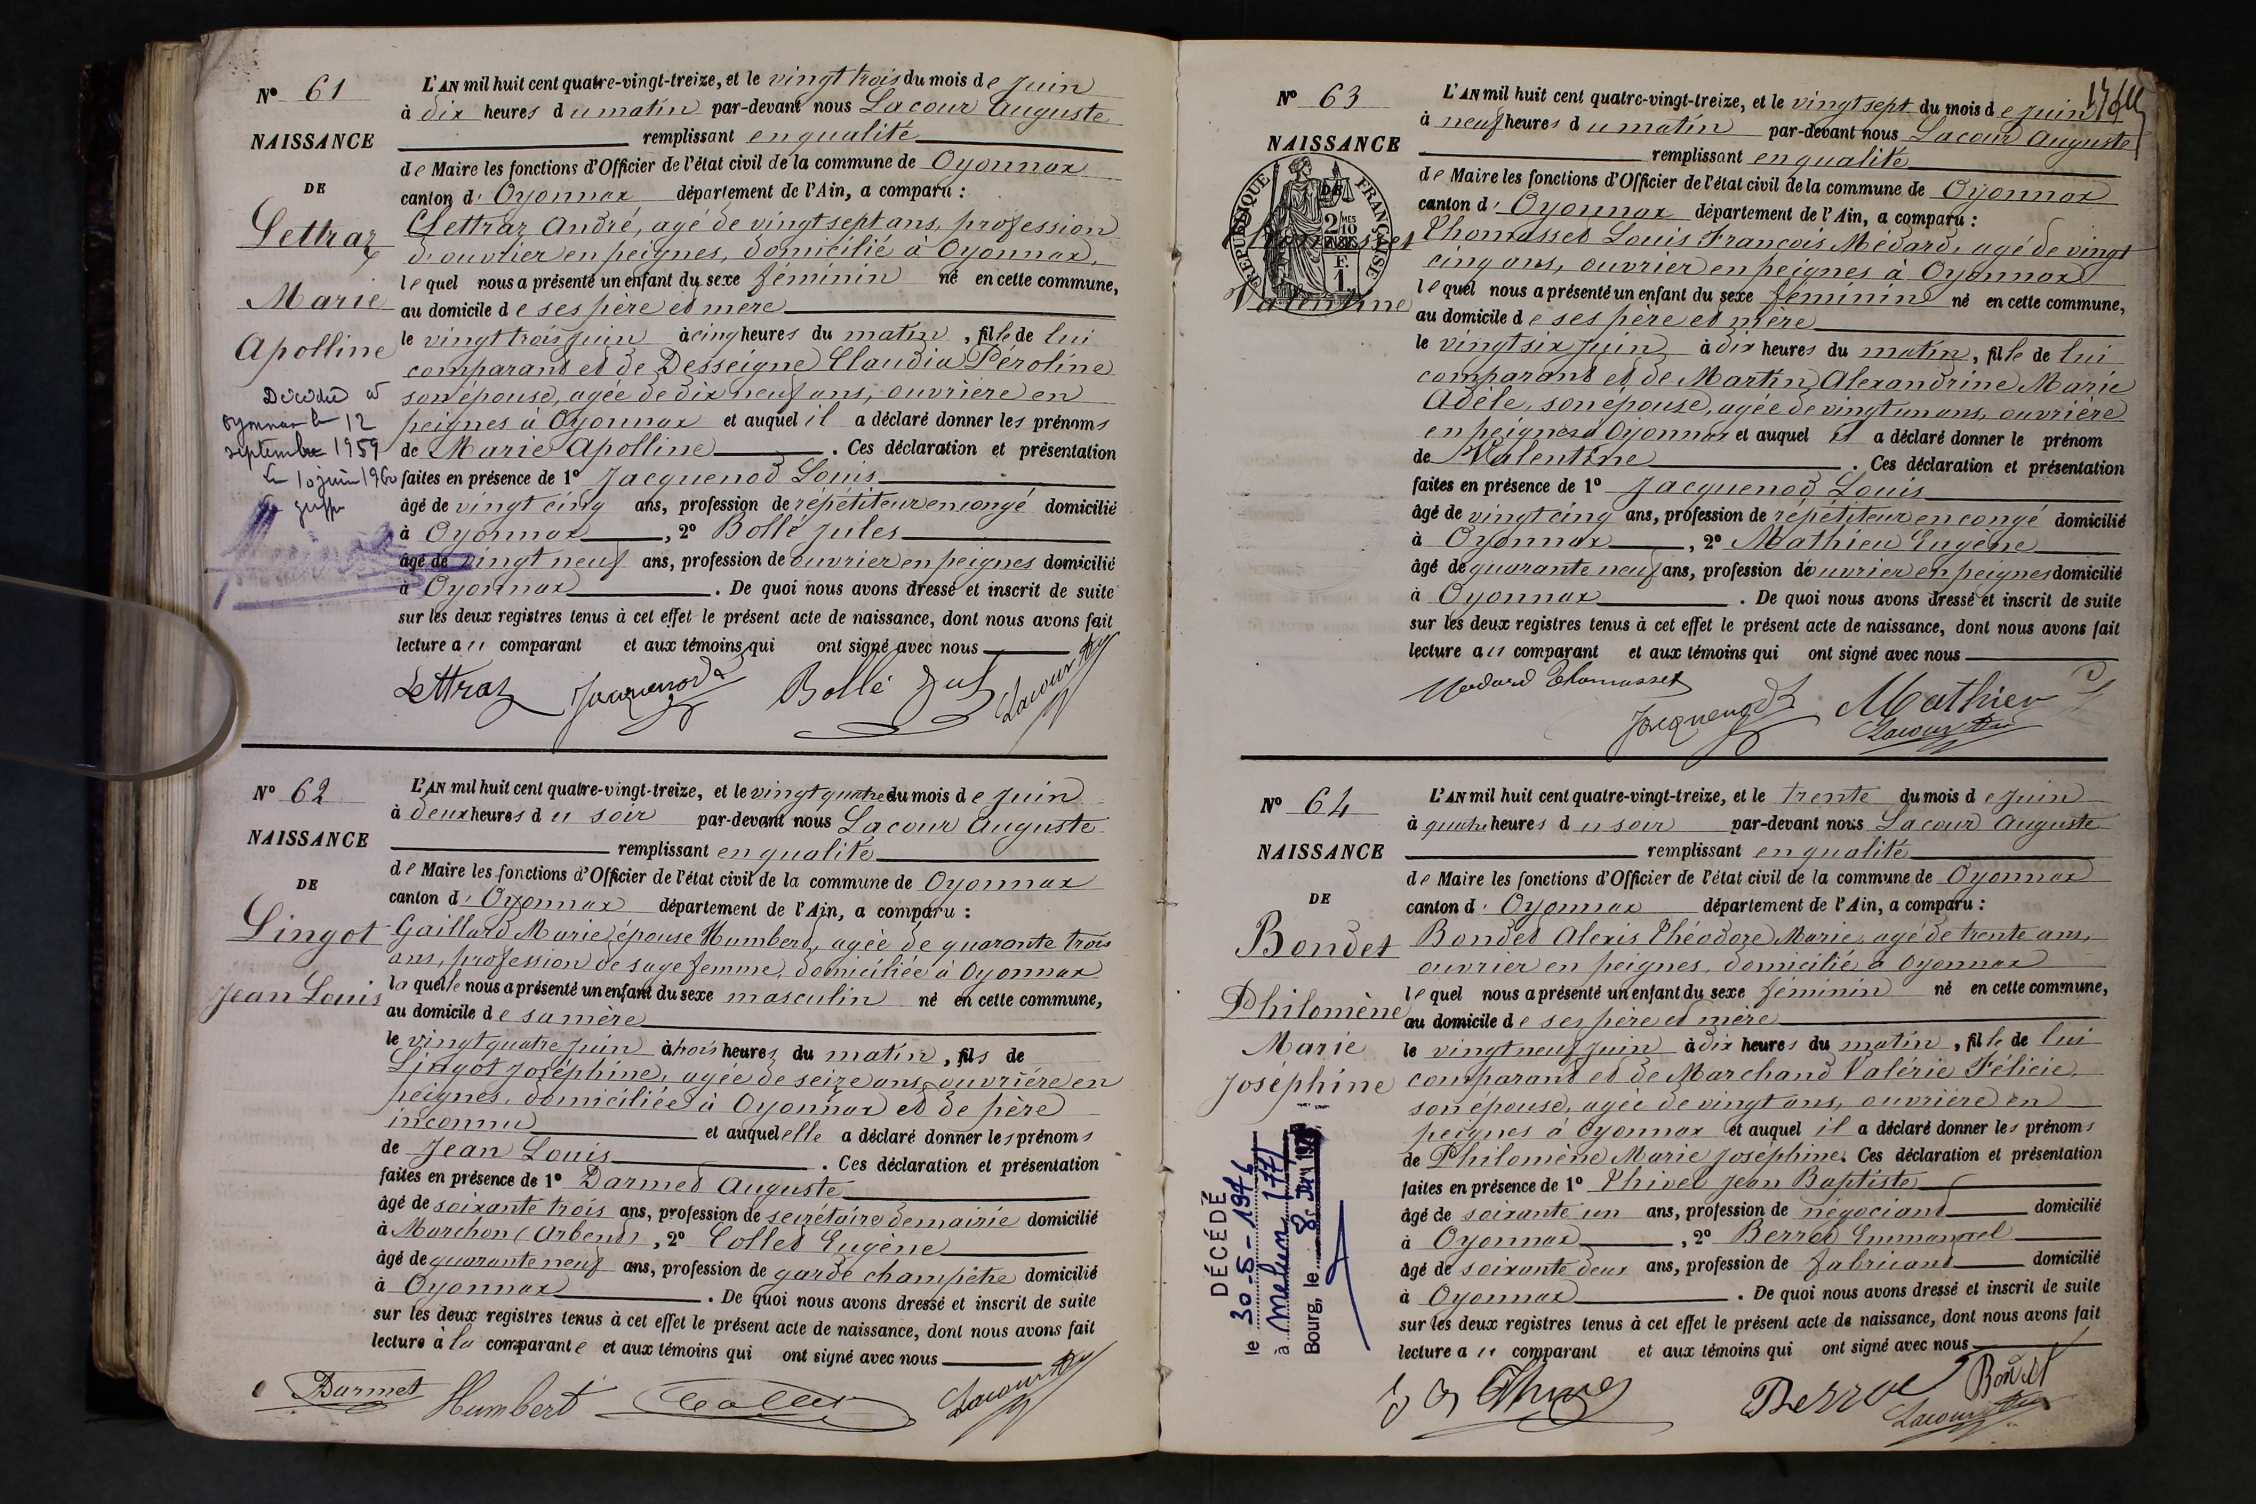 N° 61
NAISSANCE
DE
Lettraz
Marie
Apolline
Décédée à
Oyonnax le 12
septembre 1959
Le 10 juin 1960
L'AN mil huit cent quatre-vingt-treize, et le vingt trois du mois de Juin
à dix heures du matin par-devant nous Lacour Auguste
remplissant en qualité
de Maire les fonctions d'Officier de l'état civil de la commune de Oyonnax
canton d' Oyonnax département de l'Ain, a comparu :
Lettraz André, agé de vingt sept ans, profession
d'ouvrier en peignes, domicilié à Oyonnax,
lequel nous a présenté un enfant du sexe féminin né en cette commune,
au domicile de ses père et mère
le vingt trois juin à cinq heures du matin, fille de lui
comparant et de Desseigne Claudia Péroline
son épouse, agée de dix neuf ans, ouvrière en
peignes à Oyonnax et auquel il a déclaré donner les prénoms
de Marie Apolline. Ces déclaration et présentation
faites en présence de 1° Jacquenod Louis
âgé de vingt cinq ans, profession de répétiteur en congé domicilié
à Oyonnax, 2° Bollé Jules
âgé de vingt neuf ans, profession de ouvrier en peignes domicilié
à Oyonnax. De quoi nous avons dressé et inscrit de suite
sur les deux registres tenus à cet effet le présent acte de naissance, dont nous avons fait
lecture au comparant et aux témoins qui ont signé avec nous
Lettraz Jacquenod Bollé Jul Lacour
N° 62
NAISSANCE
DE
Lingot
Jean Louis
L'AN mil huit cent quatre-vingt-treize, et le vingt quatre du mois de Juin
à deux heures du soir par-devant nous Lacour Auguste
remplissant en qualité
de Maire les fonctions d'Officier de l'état civil de la commune de Oyonnax
canton d' Oyonnax département de l'Ain, a comparu :
Gaillard Marie épouse Humbert, agée de quarante trois
ans, profession de sage femme, domiciliée à Oyonnax
laquelle nous a présenté un enfant du sexe masculin né en cette commune,
au domicile de sa mère
le vingt quatre juin à trois heures du matin, fils de
Lingot Joséphine, agée de seize ans, ouvrière en
peignes, domiciliée à Oyonnax et de père
inconnu et auquel elle a déclaré donner les prénoms
de Jean Louis. Ces déclaration et présentation
faites en présence de 1° Darmet Auguste
âgé de soixante trois ans, profession de secrétaire de mairie domicilié
à Marchon (Arbent), 2° Collet Eugène
âgé de quarante neuf ans, profession de garde champêtre domicilié
à Oyonnax. De quoi nous avons dressé et inscrit de suite
sur les deux registres tenus à cet effet le présent acte de naissance, dont nous avons fait
lecture à la comparante et aux témoins qui ont signé avec nous
Darmet Humbert Collet Lacour
N° 63
NAISSANCE
DE
RÉPUBLIQUE FRANÇAISE
2 MES
10
F.
1
Thomasset
Valentine
L'AN mil huit cent quatre-vingt-treize, et le vingt sept du mois de Juin
à neuf heures du matin par-devant nous Lacour Auguste
remplissant en qualité
de Maire les fonctions d'Officier de l'état civil de la commune de Oyonnax
canton d' Oyonnax département de l'Ain, a comparu :
Thomasset Louis François Médard, agé de vingt
cinq ans, ouvrier en peignes à Oyonnax
lequel nous a présenté un enfant du sexe féminin né en cette commune,
au domicile de ses père et mère
le vingt six juin à dix heures du matin, fille de lui
comparant et de Martin Alexandrine Marie
Adèle, son épouse, agée de vingt un ans, ouvrière
en peignes à Oyonnax et auquel il a déclaré donner le prénom
de Valentine. Ces déclaration et présentation
faites en présence de 1° Jacquenod Louis
âgé de vingt cinq ans, profession de répétiteur en congé domicilié
à Oyonnax, 2° Mathieu Eugène
âgé de quarante neuf ans, profession de ouvrier en peignes domicilié
à Oyonnax. De quoi nous avons dressé et inscrit de suite
sur les deux registres tenus à cet effet le présent acte de naissance, dont nous avons fait
lecture au comparant et aux témoins qui ont signé avec nous
Médard Thomasset Jacquenod Mathieu
Lacour
N° 64
NAISSANCE
DE
Bondet
Philomène
Marie
Joséphine
DÉCÉDÉ
le 30-5-1976
à Melun 177
Bourg, le 8
L'AN mil huit cent quatre-vingt-treize, et le trente du mois de Juin
à quatre heures du soir par-devant nous Lacour Auguste
remplissant en qualité
de Maire les fonctions d'Officier de l'état civil de la commune de Oyonnax
canton d' Oyonnax département de l'Ain, a comparu :
Bondet Alexis Théodore Marie, agé de trente ans,
ouvrier en peignes, domicilié à Oyonnax
lequel nous a présenté un enfant du sexe féminin né en cette commune,
au domicile de ses père et mère
le vingt neuf juin à dix heures du matin, fille de lui
comparant et de Marchand Valérie Félicie,
son épouse, agée de vingt ans, ouvrière en
peignes à Oyonnax et auquel il a déclaré donner les prénoms
de Philomène Marie Joséphine. Ces déclaration et présentation
faites en présence de 1° Thivel Jean Baptiste
âgé de soixante un ans, profession de négociant domicilié
à Oyonnax, 2° Berrod Emmanuel
âgé de soixante deux ans, profession de fabricant domicilié
à Oyonnax. De quoi nous avons dressé et inscrit de suite
sur les deux registres tenus à cet effet le présent acte de naissance, dont nous avons fait
lecture au comparant et aux témoins qui ont signé avec nous
Bondet
Lacour